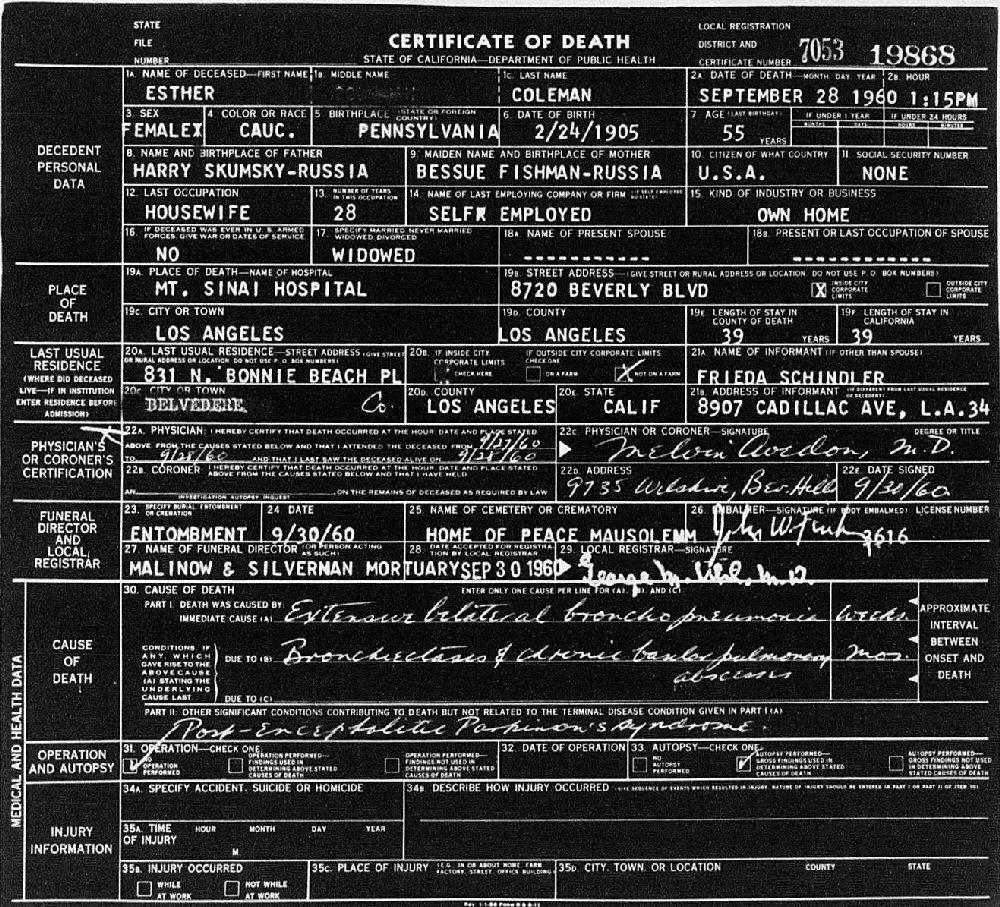 STATE FILE NUMBER
CERTIFICATE OF DEATH
STATE OF CALIFORNIA—DEPARTMENT OF PUBLIC HEALTH
LOCAL REGISTRATION DISTRICT AND CERTIFICATE NUMBER 7053 19868
DECEDENT PERSONAL DATA
1A. NAME OF DECEASED—FIRST NAME 1B. MIDDLE NAME 1C. LAST NAME 2A. DATE OF DEATH—MONTH, DAY, YEAR 2B. HOUR
ESTHER COLEMAN SEPTEMBER 28 1960 1:15PM
3. SEX 4. COLOR OR RACE 5. BIRTHPLACE (STATE OR FOREIGN COUNTRY) 6. DATE OF BIRTH 7. AGE (LAST BIRTHDAY) IF UNDER 1 YEAR IF UNDER 24 HOURS
FEMALEX CAUC. PENNSYLVANIA 2/24/1905 55 YEARS
8. NAME AND BIRTHPLACE OF FATHER 9. MAIDEN NAME AND BIRTHPLACE OF MOTHER 10. CITIZEN OF WHAT COUNTRY 11. SOCIAL SECURITY NUMBER
HARRY SKUMSKY-RUSSIA BESSUE FISHMAN-RUSSIA U.S.A. NONE
12. LAST OCCUPATION 13. NUMBER OF YEARS IN THIS OCCUPATION 14. NAME OF LAST EMPLOYING COMPANY OR FIRM 15. KIND OF INDUSTRY OR BUSINESS
HOUSEWIFE 28 SELF EMPLOYED OWN HOME
16. IF DECEASED WAS EVER IN U. S. ARMED FORCES, GIVE WAR OR DATES OF SERVICE 17. SPECIFY MARRIED, NEVER MARRIED, WIDOWED, DIVORCED 18A. NAME OF PRESENT SPOUSE 18B. PRESENT OR LAST OCCUPATION OF SPOUSE
NO WIDOWED ------------ ------------
PLACE OF DEATH
19A. PLACE OF DEATH—NAME OF HOSPITAL 19B. STREET ADDRESS—(GIVE STREET OR RURAL ADDRESS OR LOCATION. DO NOT USE P. O. BOX NUMBERS)
MT. SINAI HOSPITAL 8720 BEVERLY BLVD X INSIDE CITY CORPORATE LIMITS OUTSIDE CITY CORPORATE LIMITS
19C. CITY OR TOWN 19D. COUNTY 19E. LENGTH OF STAY IN COUNTY OF DEATH 19F. LENGTH OF STAY IN CALIFORNIA
LOS ANGELES LOS ANGELES 39 YEARS 39 YEARS
LAST USUAL RESIDENCE (WHERE DID DECEASED LIVE—IF IN INSTITUTION ENTER RESIDENCE BEFORE ADMISSION)
20A. LAST USUAL RESIDENCE—STREET ADDRESS (GIVE STREET OR RURAL ADDRESS OR LOCATION. DO NOT USE P. O. BOX NUMBERS) 20B. IF INSIDE CITY CORPORATE LIMITS CHECK HERE IF OUTSIDE CITY CORPORATE LIMITS CHECK ONE ON A FARM NOT ON A FARM 21A. NAME OF INFORMANT (IF OTHER THAN SPOUSE)
831 N. BONNIE BEACH PL X FRIEDA SCHINDLER
20C. CITY OR TOWN 20D. COUNTY 20E. STATE 21B. ADDRESS OF INFORMANT
BELVEDERE Co. LOS ANGELES CALIF 8907 CADILLAC AVE, L.A.34
PHYSICIAN'S OR CORONER'S CERTIFICATION
22A. PHYSICIAN: I HEREBY CERTIFY THAT DEATH OCCURRED AT THE HOUR, DATE AND PLACE STATED ABOVE FROM THE CAUSES STATED BELOW AND THAT I ATTENDED THE DECEASED FROM 9/27/60
TO 9/28/60 AND THAT I LAST SAW THE DECEASED ALIVE ON 9/28/60
22C. PHYSICIAN OR CORONER—SIGNATURE DEGREE OR TITLE
Melvin Avedon, M.D.
22B. CORONER: I HEREBY CERTIFY THAT DEATH OCCURRED AT THE HOUR, DATE AND PLACE STATED ABOVE FROM THE CAUSES STATED BELOW AND THAT I HAVE HELD
AN INVESTIGATION, AUTOPSY, INQUEST ON THE REMAINS OF DECEASED AS REQUIRED BY LAW
22D. ADDRESS 22E. DATE SIGNED
9735 Wilshire, Bev. Hills 9/30/60
FUNERAL DIRECTOR AND LOCAL REGISTRAR
23. SPECIFY BURIAL, ENTOMBMENT OR CREMATION 24. DATE 25. NAME OF CEMETERY OR CREMATORY 26. EMBALMER—SIGNATURE (IF BODY EMBALMED) LICENSE NUMBER
ENTOMBMENT 9/30/60 HOME OF PEACE MAUSOLEMM John W. 3616
27. NAME OF FUNERAL DIRECTOR (OR PERSON ACTING AS SUCH) 28. DATE ACCEPTED FOR REGISTRATION BY LOCAL REGISTRAR 29. LOCAL REGISTRAR—SIGNATURE
MALINOW & SILVERNAN MORTUARY SEP 30 1960 George M. Uhl, M.D.
MEDICAL AND HEALTH DATA
CAUSE OF DEATH
30. CAUSE OF DEATH ENTER ONLY ONE CAUSE PER LINE FOR (A), (B), AND (C)
PART I. DEATH WAS CAUSED BY: IMMEDIATE CAUSE (A) Extensive bilateral bronchopneumonia weeks
CONDITIONS, IF ANY, WHICH GAVE RISE TO THE ABOVE CAUSE (A) STATING THE UNDERLYING CAUSE LAST.
DUE TO (B) Bronchiectasis & chronic basilar pulmonary abscess mos.
DUE TO (C)
APPROXIMATE INTERVAL BETWEEN ONSET AND DEATH
PART II: OTHER SIGNIFICANT CONDITIONS CONTRIBUTING TO DEATH BUT NOT RELATED TO THE TERMINAL DISEASE CONDITION GIVEN IN PART I (A)
Post-Encephalitic Parkinson's Syndrome.
OPERATION AND AUTOPSY
31. OPERATION—CHECK ONE: 32. DATE OF OPERATION 33. AUTOPSY—CHECK ONE:
NO OPERATION PERFORMED
OPERATION PERFORMED—FINDINGS USED IN DETERMINING ABOVE STATED CAUSES OF DEATH
OPERATION PERFORMED—FINDINGS NOT USED IN DETERMINING ABOVE STATED CAUSES OF DEATH
NO AUTOPSY PERFORMED
AUTOPSY PERFORMED—GROSS FINDINGS USED IN DETERMINING ABOVE STATED CAUSES OF DEATH
AUTOPSY PERFORMED—GROSS FINDINGS NOT USED IN DETERMINING ABOVE STATED CAUSES OF DEATH
INJURY INFORMATION
34A. SPECIFY ACCIDENT, SUICIDE OR HOMICIDE 34B. DESCRIBE HOW INJURY OCCURRED
35A. TIME OF INJURY HOUR MONTH DAY YEAR
M.
35B. INJURY OCCURRED 35C. PLACE OF INJURY (E.G., IN OR ABOUT HOME, FARM, FACTORY, STREET, OFFICE BUILDING) 35D. CITY, TOWN, OR LOCATION COUNTY STATE
WHILE AT WORK NOT WHILE AT WORK